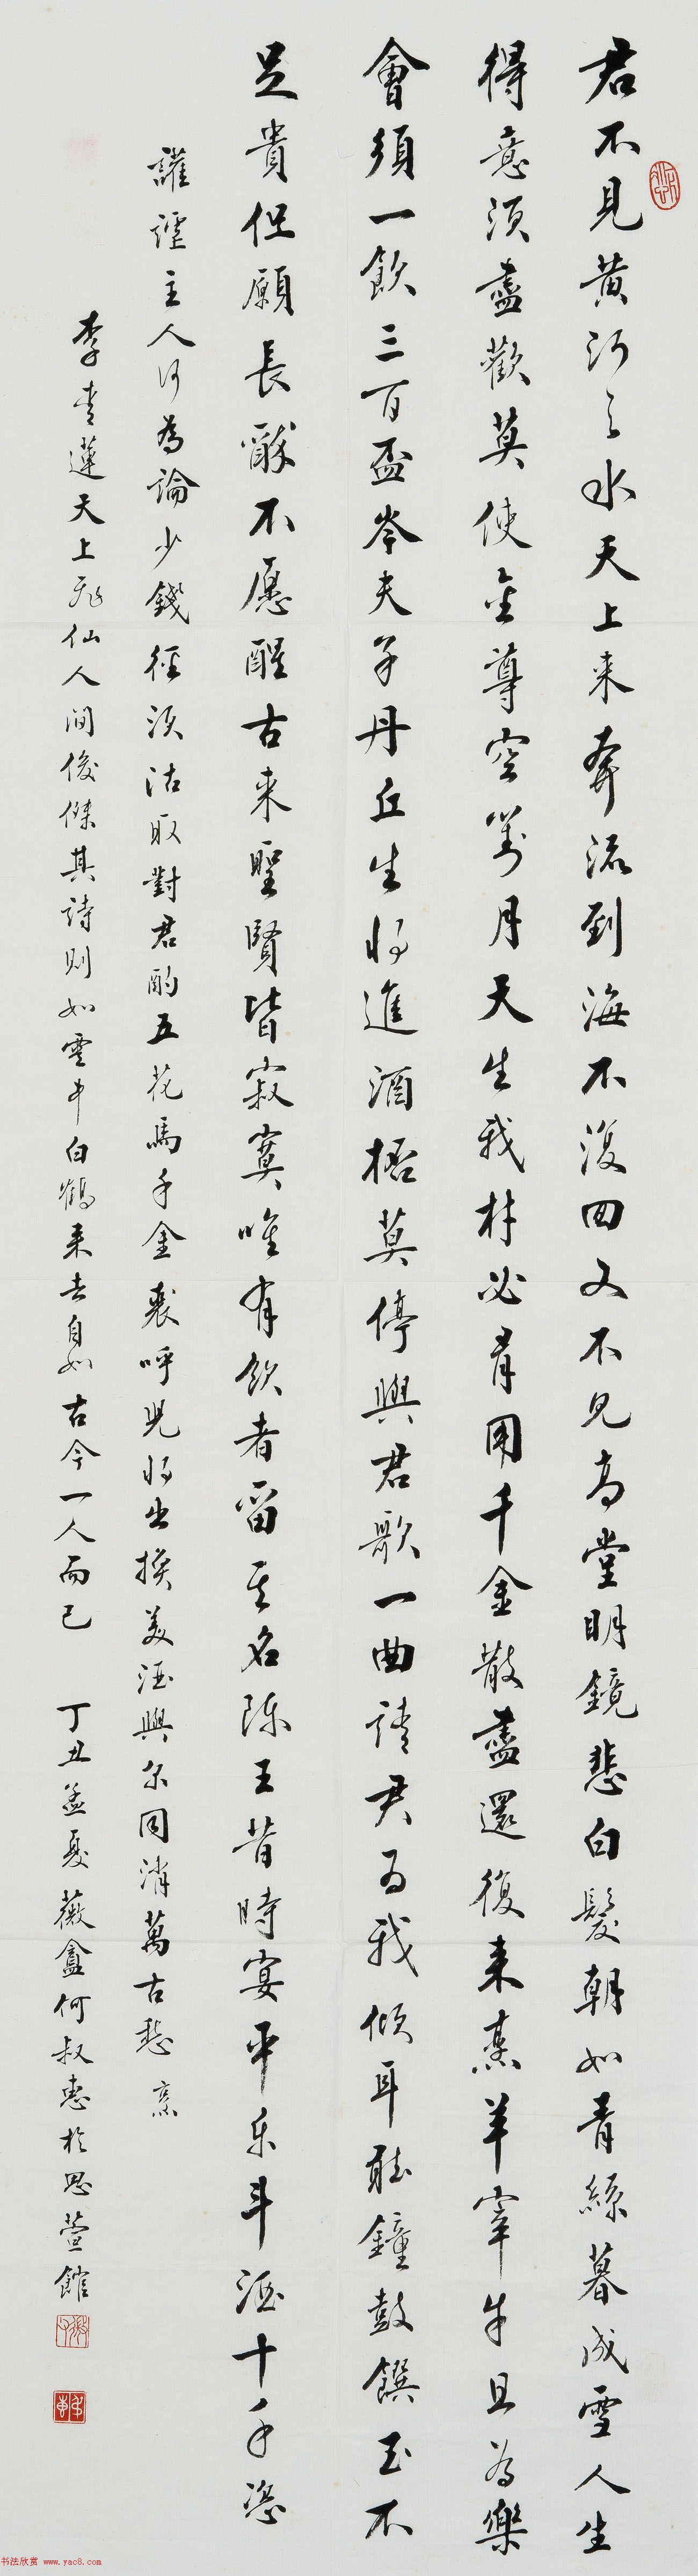 君不見黃河之水天上来奔流到海不復回又不見高堂明鏡悲白髮朝如青絲暮成雪人生
得意須盡歡莫使金尊空對月天生我材必有用千金散盡還復来烹羊宰牛且為樂
會須一飲三百盃岑夫子丹丘生將進酒杯莫停與君歌一曲請君為我傾耳聽鐘鼓饌玉不
足貴但願長酔不愿醒古来聖賢皆寂寞唯有飲者留其名陳王昔時宴平乐斗酒十千恣
讙謔主人何為論少錢徑須沽取對君酌五花馬千金裘呼兒將出換美酒與尔同消萬古愁 烹
李青蓮天上飛仙人間俊傑其詩則如雲中白鶴来去自如古今一人而已 丁丑孟夏薇盦何叔惠於思萱館
书法欣赏 www.yac8.com